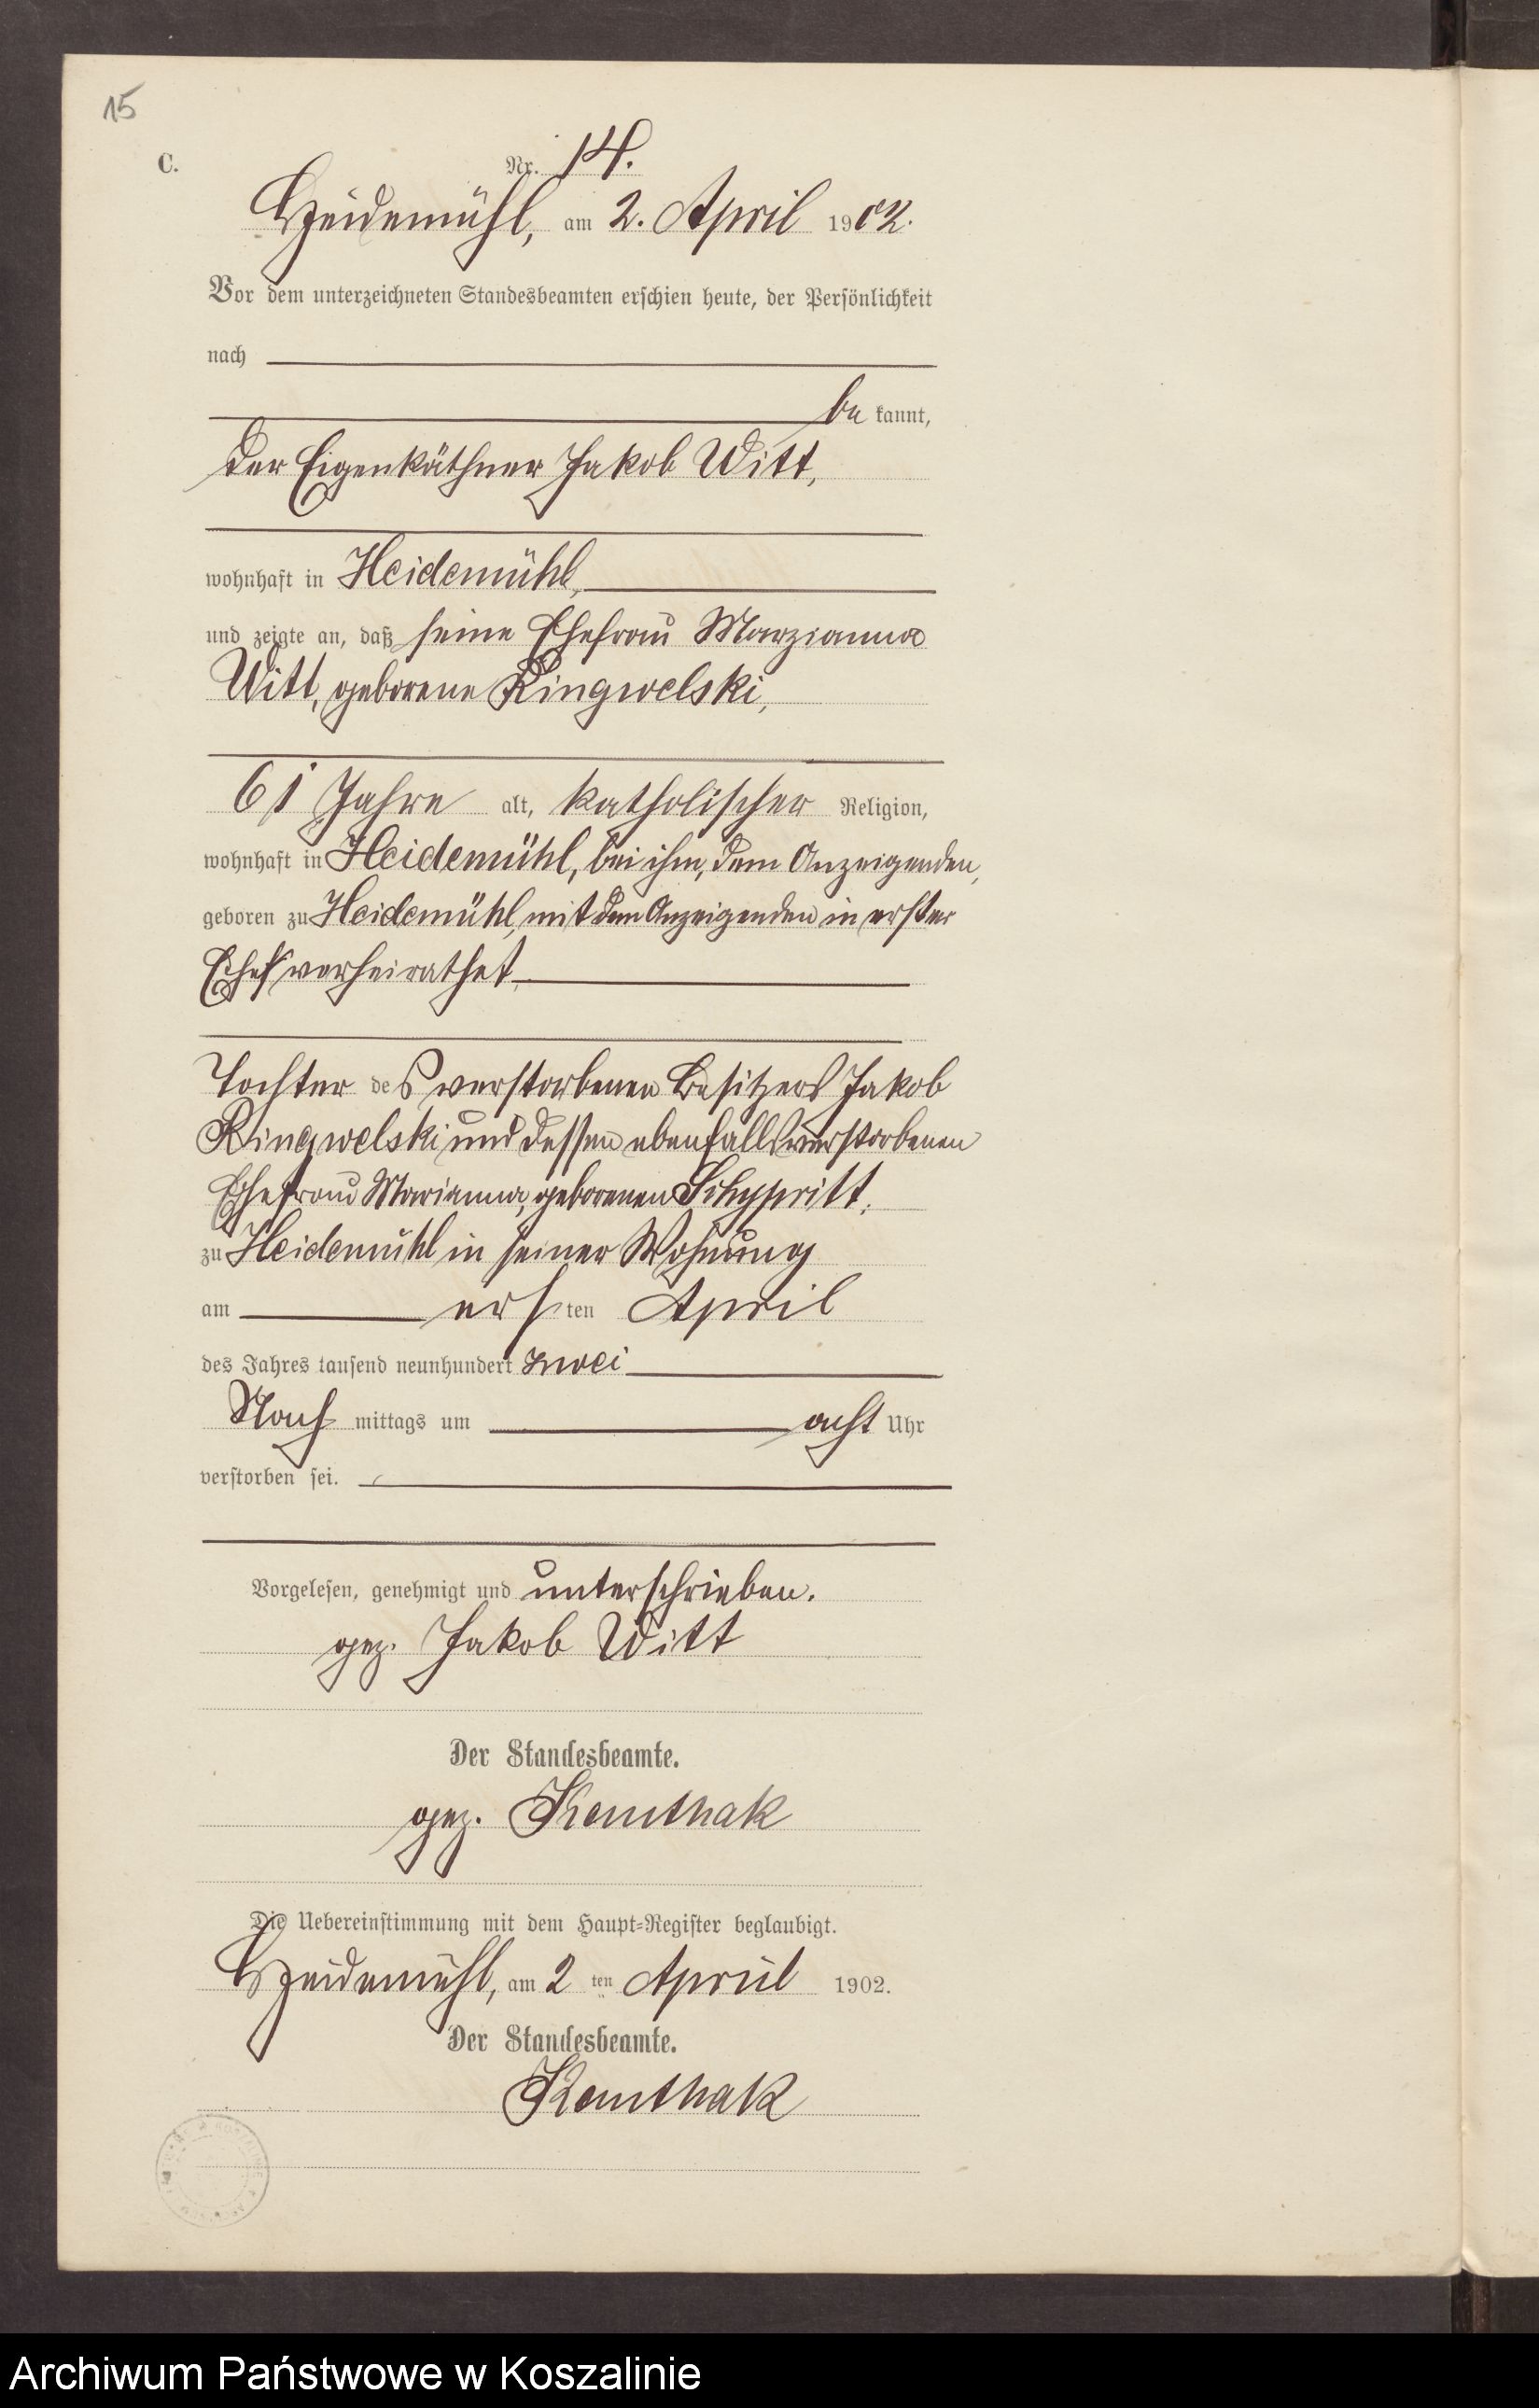 15
C.
Nr. 14.
Heidemühl, am 2. April 1902.
Vor dem unterzeichneten Standesbeamten erschien heute, der Persönlichkeit
nach
be kannt,
der Eigenkäthner Jakob Witt,
wohnhaft in Heidemühl,
und zeigte an, daß seine Ehefrau Marzianna
Witt, geborene Ringwelski,
61 Jahre alt, katholischer Religion,
wohnhaft in Heidemühl, bei ihm, dem Anzeigenden,
geboren zu Heidemühl, mit dem Anzeigenden in erster
Ehe verheirathet,
Tochter des verstorbenen Besitzers Jakob
Ringwelski und dessen ebenfalls verstorbenen
Ehefrau Marianna, geborenen
zu Heidemühl in seiner Wohnung
am ersten April
des Jahres tausend neunhundert zwei
Nach mittags um acht Uhr
verstorben sei.
Vorgelesen, genehmigt und unterschrieben.
gez. Jakob Witt
Der Standesbeamte.
gez. Kemthak
Die Uebereinstimmung mit dem Haupt-Register beglaubigt.
Heidemühl, am 2 ten April 1902.
Der Standesbeamte.
Kemthak
Archiwum Państwowe w Koszalinie